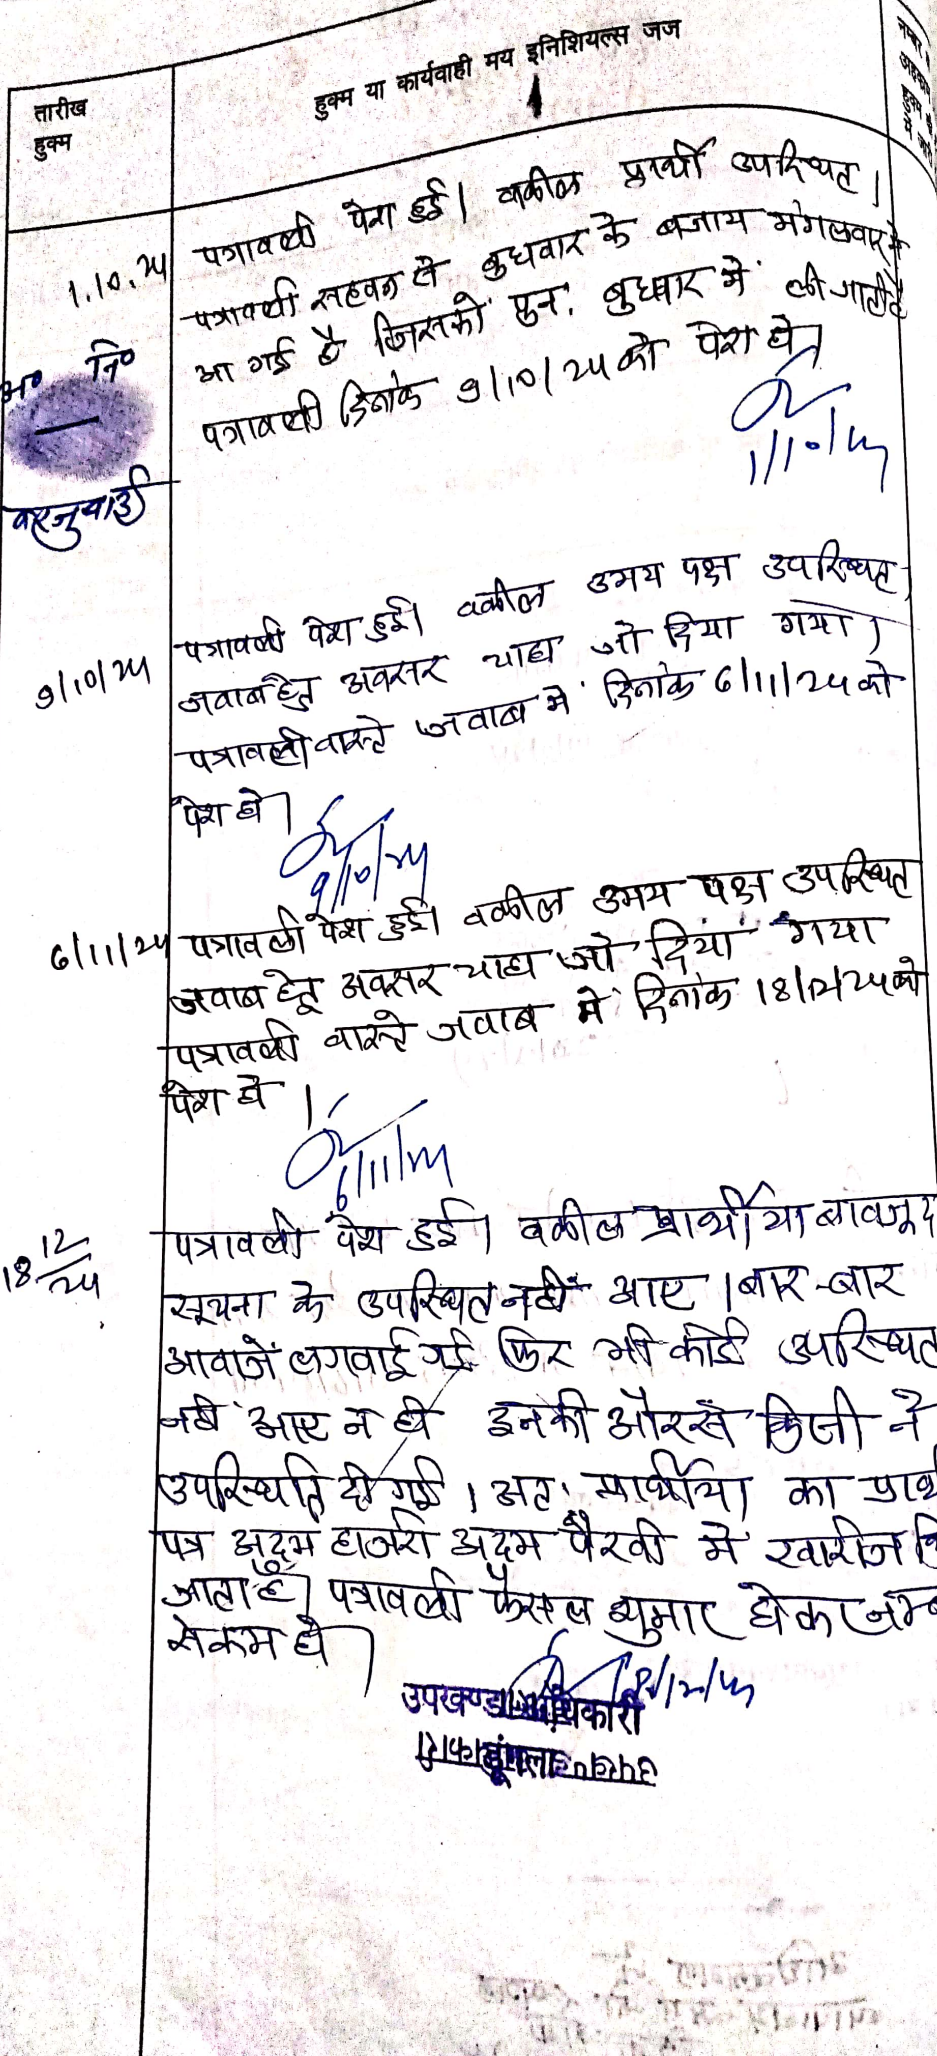 तारीख
हुक्म
हुक्म या कार्यवाही मय इनिशियल्स जज
नम्बर
हुक्म
में
1.10.24
पत्रावली पेश हुई। वकील प्रार्थी उपस्थित।
पत्रावली सहवन से बुधवार के बजाय मंगलवार में
आ गई है जिसको पुनः बुधवार में ली जाती है
पत्रावली दिनांक 9/10/24 को पेश हो।
1/10/24
अ० नि०
9/10/24
पत्रावली पेश हुई। वकील उभय पक्ष उपस्थित
जवाब हेतु अवसर चाहा जो दिया गया।
पत्रावली वास्ते जवाब में दिनांक 6/11/24 को
पेश हो।
9/10/24
6/11/24
पत्रावली पेश हुई। वकील उभय पक्ष उपस्थित
जवाब हेतु अवसर चाहा जो दिया गया
पत्रावली वास्ते जवाब में दिनांक 18/12/24 को
पेश हो।
6/11/24
18 12/24
पत्रावली पेश हुई। वकील प्रार्थीया बावजूद
सूचना के उपस्थित नहीं आए। बार-बार
आवाजें लगवाई गई फिर भी कोई उपस्थित
नही आए न ही इनकी और से किसी ने
उपस्थिति दी गई। अतः प्रार्थीया का प्रार्थ
पत्र अदम हाजरी अदम पैरवी में खारीज कि
जाता है। पत्रावली फैसल शुमार होकर नम्ब
से कम हो।
18/12/24
उपखण्ड अधिकारी